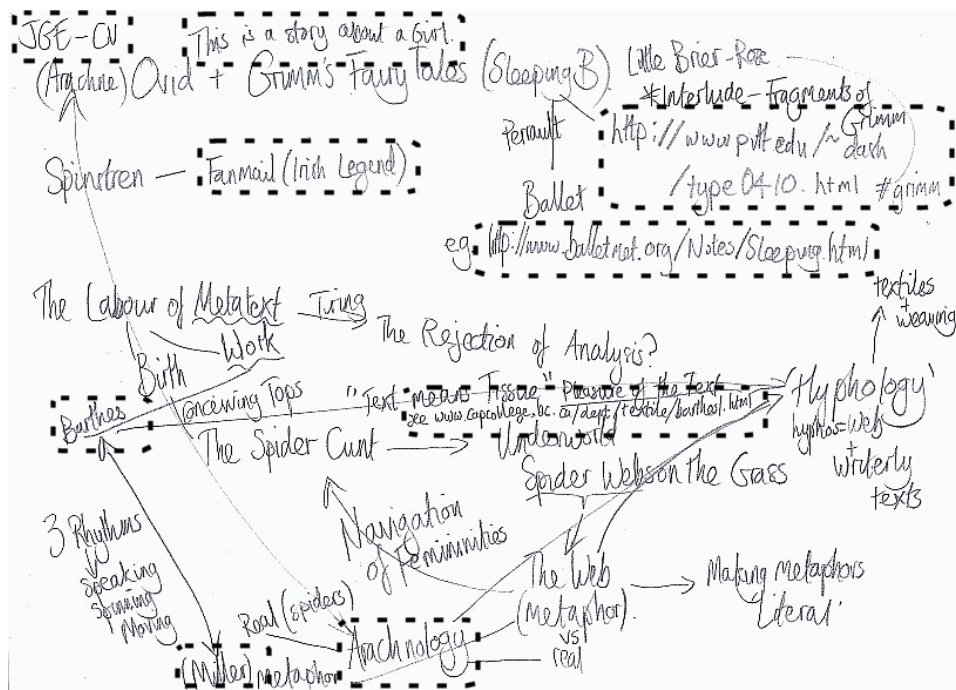 JGE-CV
This is a story about a Girl.
(Arachne) Ovid + Grimm's Fairy Tales (Sleeping B).
Little Brier-Rose
*Interlude-Fragments of
Grimm
Perrault
http://www.pitt.edu/~dash
/type0410.html #grimm
Spinstren — Fanmail (Irish Legend)
Ballet
eg. http://www.balletmet.org/Notes/Sleeping.html
textiles
+
weaving
The Labour of Metatext
Tiring
The Rejection of Analysis?
Work
Birth
Barthes
Conceiving Tops
"Text means Tissue" Pleasure of the Text
see www.capcollege.bc.ca/dept/textile/barthes1.html
'Hyphology'
hyphos=web
+
writerly
texts
The Spider Cunt
Underworld
Spider Webs on the Grass
3 Rhythms
speaking
spinning
Moving
Navigation
of Femininities
The Web
(metaphor).
vs
real
Making metaphors
'Literal'
Real (spiders)
Arachnology
(Miller) metaphor